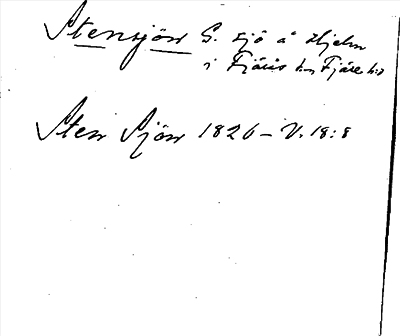 Stensjön G. sjö å Hjelm
i Fjärås s:n Fjäre h:d
Sten Sjön 1826 – V. 18:8